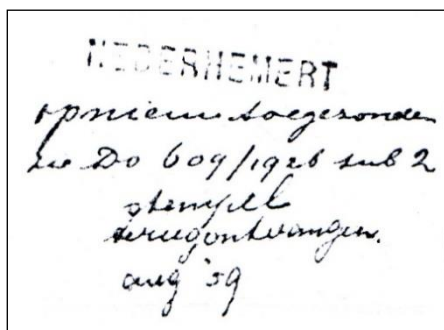 NEDERHEMERT
opnieuw toegezonden
zie Do 609/1926 sub 2
stempel
terugontvangen.
aug '39